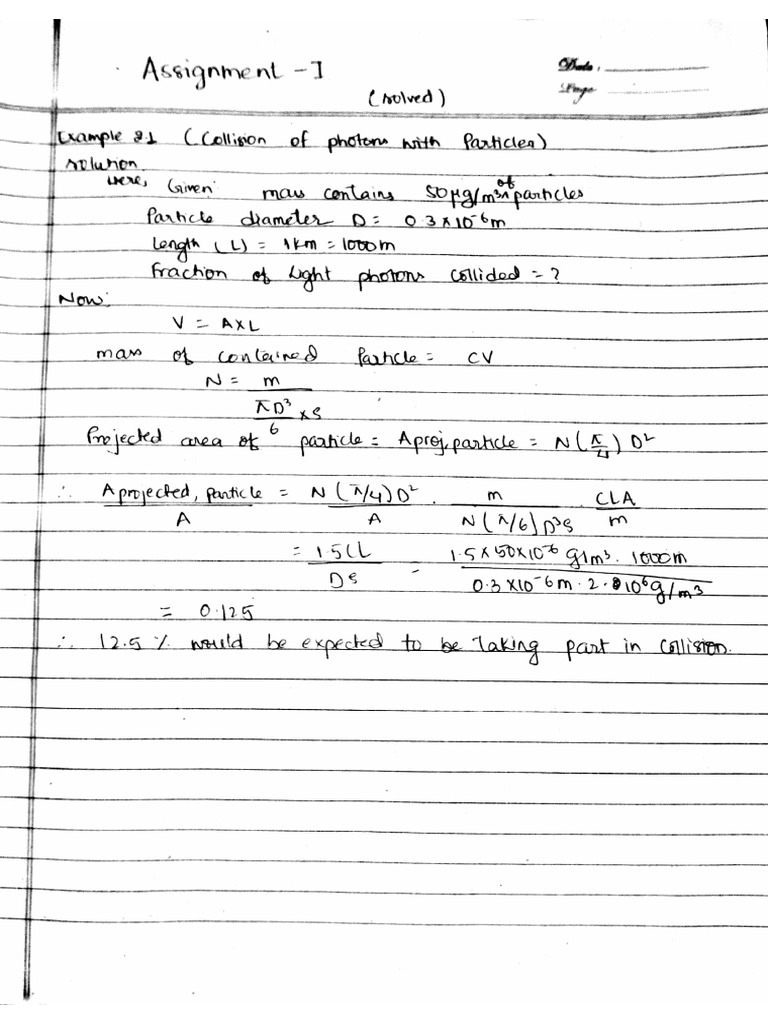 Assignment - I
Date:
Page
(solved)
Example 8.1 (Collision of photons with Particles)
solution
were, Given: mass contains 50μg/m³ of particles
Particle diameter D = 0.3×10⁻⁶m
Length (L) = 1km = 1000m
Fraction of Light photons collided = ?
Now:
V = A×L
mass of contained Particle = CV
N = m / (πD³/6 × ρ)
Projected area of particle = Aproj,particle = N(π/4) D²
∴ Aprojected, particle / A = N(π/4)D² / A . m / N(π/6)D³ρ . CLA / m
= 1.5CL / Dρ = 1.5×50×10⁻⁶ g/m³. 1000m / 0.3×10⁻⁶m. 2.010⁶g/m³
= 0.125
∴ 12.5 % would be expected to be Taking part in collision.